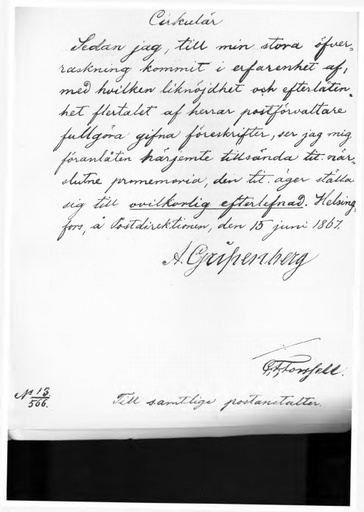 Cirkulär
Sedan jag, till min stora öfver-
raskning kommit i erfarenhet af,
med hvilken liknöjdhet och efterlåten-
het flertalet af herrar postförvaltare
fullgöra gifna föreskrifter, ser jag mig
föranlåten härjemte tillsända tit. när-
slutne promemoria, den tit. äger ställa
sig till ovilkorlig efterlefnad. Helsing-
fors, å Postdirektionen, den 15 juni 1867.
A. Gripenberg
No 13
566.
Till samtlige postanstalter.